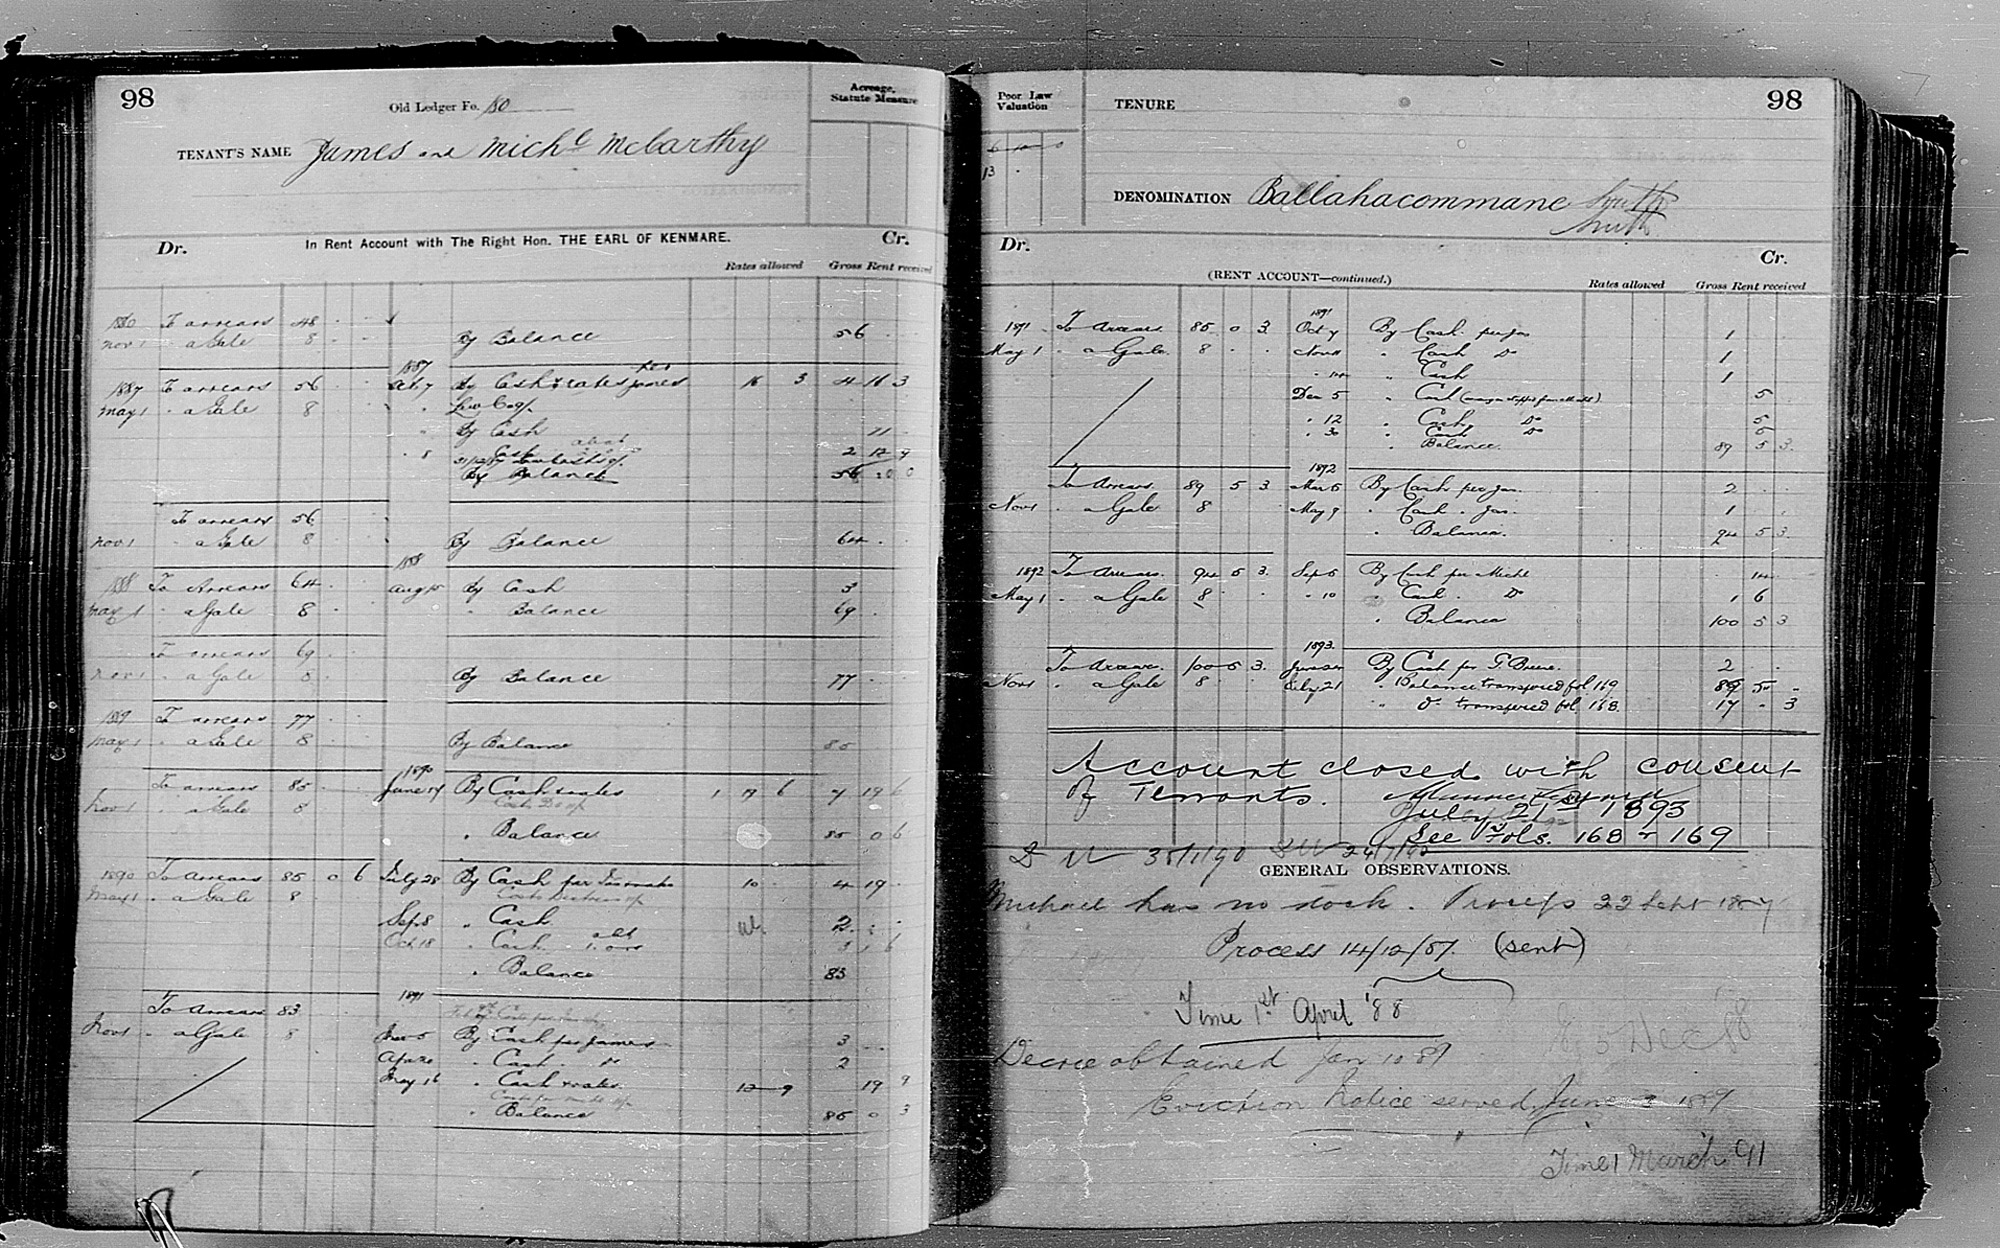 98
Old Ledger Fo. 80
Acreage, Statute Measure
TENANT'S NAME James and Michl McCarthy
Dr. In Rent Account with The Right Hon. THE EARL OF KENMARE. Cr.
Rates allowed Gross Rent received
1886 To arrears 48
Nov 1 " a Gale 8 By Balance 56
1887
1887 To arrears 56 Oct 7 By Cash & rates per James 16 3 4 16 3
May 1 " a Gale 8 " Law Costs
" By Cash 11
" 8 Cash 2 12 9
By Balance 56 0 0
To arrears 56
Nov 1 " a Gale 8 By Balance 64
1888
1888 To Arrears 64 Aug 15 By Cash 3
May 1 " a Gale 8 " Balance 69
To arrears 69
Nov 1 " a Gale 8 By Balance 77
1889 To arrears 77
May 1 " a Gale 8 By Balance 85
1890
To arrears 85 June 14 By Cash & rates 1 17 6 7 19 6
Nov 1 " a Gale 8
" Balance 85 0 6
1890 To Arrears 85 0 6 July 28 By Cash per Jas rates 10 4 19
May 1 " a Gale 8
Sep 8 " Cash 2
Oct 18 " Cash 3 1 6
" Balance 83
1891
To Arrears 83
Nov 1 " a Gale 8 Mar 5 By Cash per James 3
Apr 20 " Cash Do 2
May 16 " Cash & rates 12 9 19 9
" Balance 85 0 3
Poor Law Valuation
TENURE
98
6 10 0
13
DENOMINATION Ballahacommane South
South
Dr. Cr.
(RENT ACCOUNT—continued.)
Rates allowed Gross Rent received
1891
1891 To Arrears 85 0 3 Oct 7 By Cash per Jas 1
May 1 " a Gale 8 Nov 11 " Cash Do 1
" 14 " Cash 1
Dec 5 " Cash 5
" 12 " Cash Do 5
" 30 " Cash Do 5
" Balance 89 5 3
1892
To Arrears 89 5 3 Mar 5 By Cash per Jas 2
Nov 1 " a Gale 8 May 9 " Cash " Jas 1
" Balance 94 5 3
1892 To Arrears 94 5 3 Sep 5 By Cash per Michl 14
May 1 " a Gale 8 " 10 " Cash Do 1 6
" Balance 100 5 3
1893
To Arrears 100 5 3 By Cash per 2
Nov 1 " a Gale 8 July 21 " Balance transferred fol 169 89 5
" Do transferred fol 168 17 3
Account closed with consent
of Tenants.
July 21st 1893
See Fols. 168 & 169
GENERAL OBSERVATIONS.
Michael has no stock. Process 22 Sept 1887
Process 14/12/87. (sent)
Time 1st April '88
Dec 88
Decree obtained Jan 10 89
Eviction Notice served June 1889
Time 1 March 91